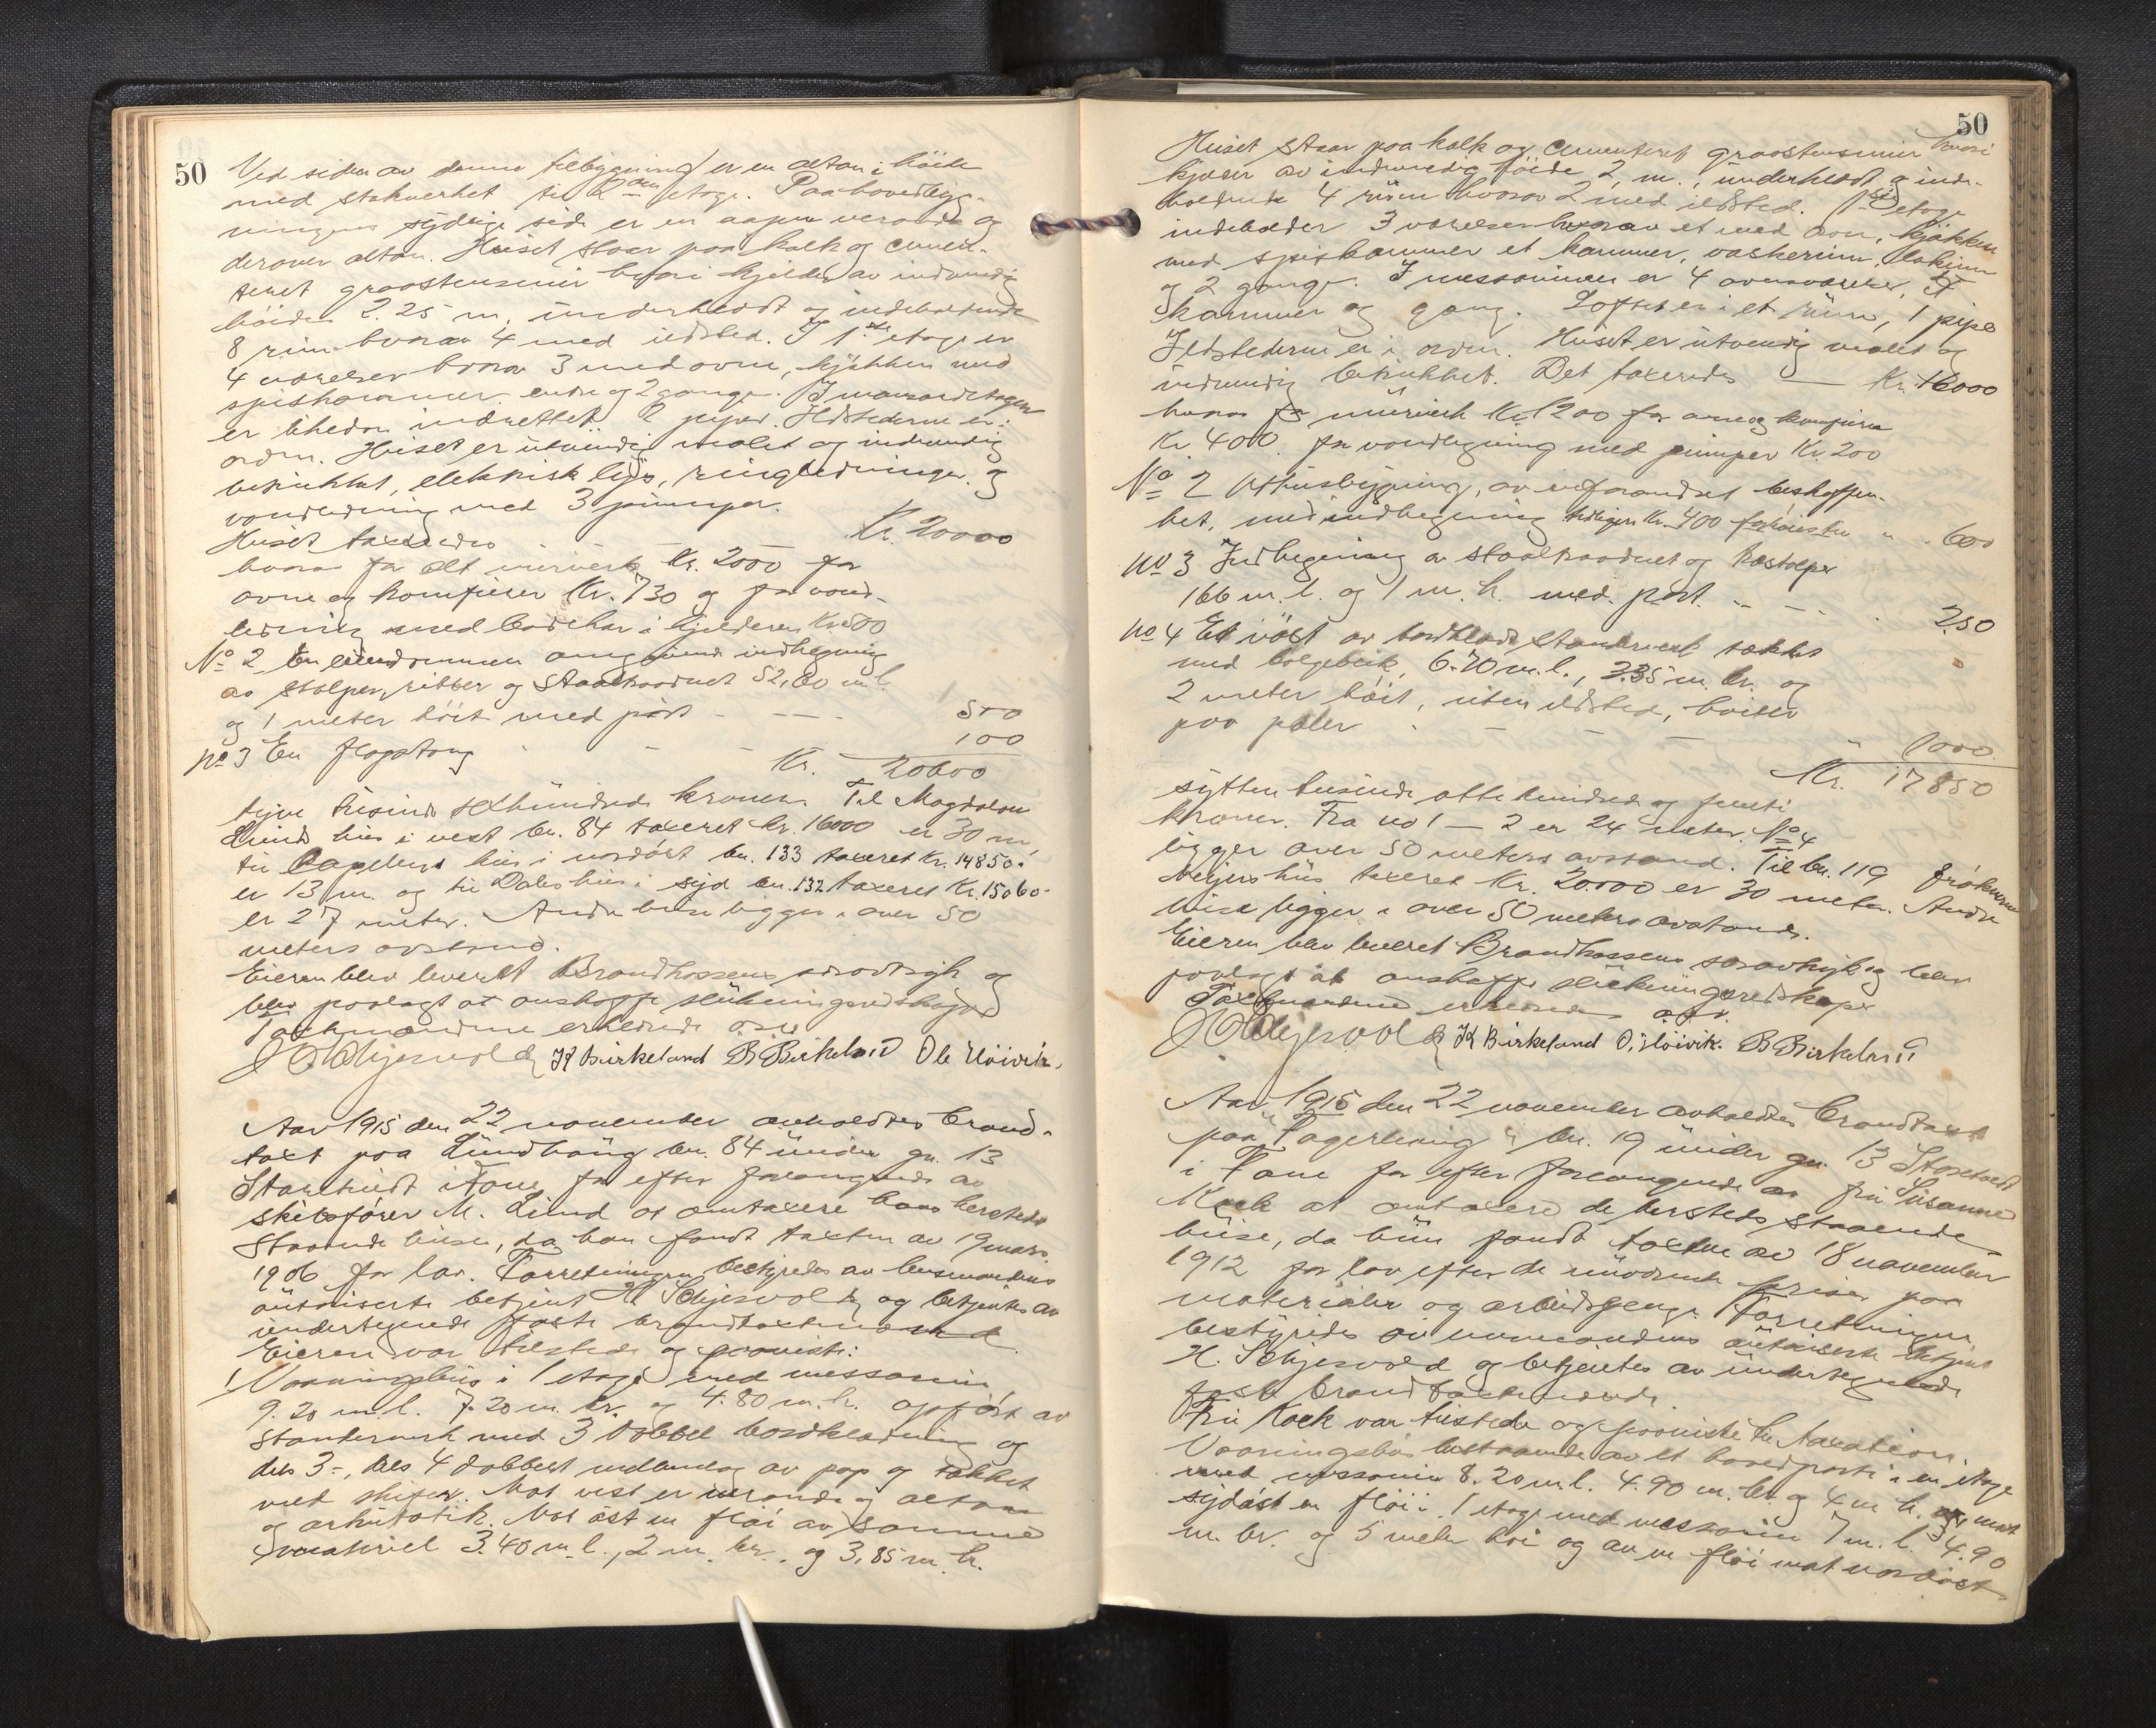 50
Ved siden av denne tilbygning er en altan i høide
med stakverket til 2den etage. Paa hovedbyg-
ningens sydlige side er en aapen veranda og
derover altan. Huset staar paa kalk og cemen-
teret graastensmur hvori kjelder av indvendig
höide 2.25 m, underhvolt og indeholdende
8 rum hvorav 4 med ildsted. I 1ste etage er
4 værelser hvorav 3 med ovne, kjökken med
spiskammer, entre og 2 gange. I mansardetagen
er likedan indrettet. 2 piper. Ildstederne er i
orden. Huset er utvendig malet og indvendig
betrukket, elektrisk lys, ringledninger og
vandledning med 3 pumper.
Huset taxeredes - - - Kr. 20000
hvorav for alt murverk Kr. 2000 for
ovne og komfurer Kr. 730 og for vand-
ledning med badekar i kjelderen Kr 500
No 2 En eiendommen omgivende indhegning
av stolper, ribber og staaltraadnet 52,60 m l.
og 1 meter höit med port - - - 500
No 3 En flagstang - - - 100
Kr. 20600
tyve tusinde sexhundrede kroner. Til Magdalon
Lunds hus i vest bn. 84 taxeret kr. 16000 er 30 m,
til Capellens hus i nordöst bn. 133 taxeret Kr. 14850.
er 13 m. og til Dales hus i syd bn. 132 taxeret Kr. 15060-
er 27 meter. Andre huse ligger i over 50
meters avstand.
Eieren blev leveret Brandkassens særavtryk og
blev paalagt at anskaffe slukningsredskaper
Taxtmændene erholdt
H Schjesvold K Birkeland B Birkeland Ole Höivik.
Aar 1915 den 22 november avholdtes brand-
taxt paa Lundhaug bn. 84 under gn. 13
Storetvedt i Fane for efter forlangende av
skibsfører M. Lund at omtaxere hans hersteds
staaende huse, da han fandt taxten av 19 mars
1906 for lav. Forretningen bestyredes av lensmandens
autoriserte betjent H Schjesvold og betjentes av
undertegnede faste brandtaxtmænd
Eieren var tilstede og paaviste:
1 Vaaningshus i 1 etage med messanin
9.20 m. l. 7.20 m. br. og 4.80 m. h. opført av
standerverk med 3 dobbel bordklædning og
dels 3-, dels 4 dobbelt mellemlag av pap og tækket
med skifer. Mot vest er veranda og altan
og arkutstik. Mot öst en fløi av samme
materiel 3.40 m. l., 2 m. br. og 3,85 m. h.
50
Huset staar paa kalk og cementeret graastensmur hvori
kjelder av indvendig höide 2, m., underhvolt og inde-
holdende 4 rum hvorav 2 med ildsted. 1ste etage
indeholder 3 værelser hvorav et med ovn, kjökken
med spiskammer et kammer, vaskerum, lokum
og 2 gange. I messaninen er 4 ovnsværelser, 2
kammer og gang. Loftet er i et rum, 1 pipe
Ildstederne er i orden. Huset er utvendig malet og
indvendig betrukket. Det taxeredes — Kr. 16000
hvorav for murverk Kr. 1200 for ovne og komfurer
Kr. 400. for vandlegning med pumper Kr. 200
No 2 Uthusbygning, av uforandret beskaffen-
het, med indhegning tidligere Kr. 400 forhöies til " 600
No 3 Indhegning av staaltraadnet og træstolper
166 m. l. og 1 m. h. med port - - - 250
No 4 Et nöst av bordklædt standerverk tækket
med bølgeblik, 6.70 m. l., 3.35 m. br. og
2 meter höit, uten ildsted, hviler
paa pæler - - - " 1000.
Kr. 17850
sytten tusinde otte hundrede og femti
kroner. Fra no 1 — 2 er 24 meter. No 4
ligger over 50 meters avstand. Til bn. 119 frøknerne
Meijers hus taxeret Kr. 20.000 er 30 meter. Andre
huse ligger i over 50 meters avstand.
Eieren blev leveret Brandkassens særavtryk og blev
paalagt at anskaffe slukningsredskaper
Taxtmændene erholdt
H Schjesvold K Birkeland O. Höivik. B Birkeland
Aar 1915 den 22 november avholdtes brandtaxt
paa "Fagerheim" bn. 19 under gn. 13 Storetvedt
i Fane for efter forlangende av fru Susanne
Kock at omtaxere de hersteds staaende
huse, da hun fandt taxten av 18 november
1912 for lav efter de nuværende priser paa
materialer og arbeidspenge. Forretningen
bestyredes av lensmandens autoriserte betjent
H. Schjesvold og betjentes av undertegnede
faste brandtaxtmænd.
Fru Kock var tilstede og paaviste til taxation
Vaaningshus bestaaende av et hovedparti i en etage
med messanin 8.20 m. l. 4.90 m. br. og 4 m h. og mot
sydöst en fløi i 1 etage med messanin 7 m. l. 4.90
m. br. og 5 meter höi og av en fløi mot nordöst